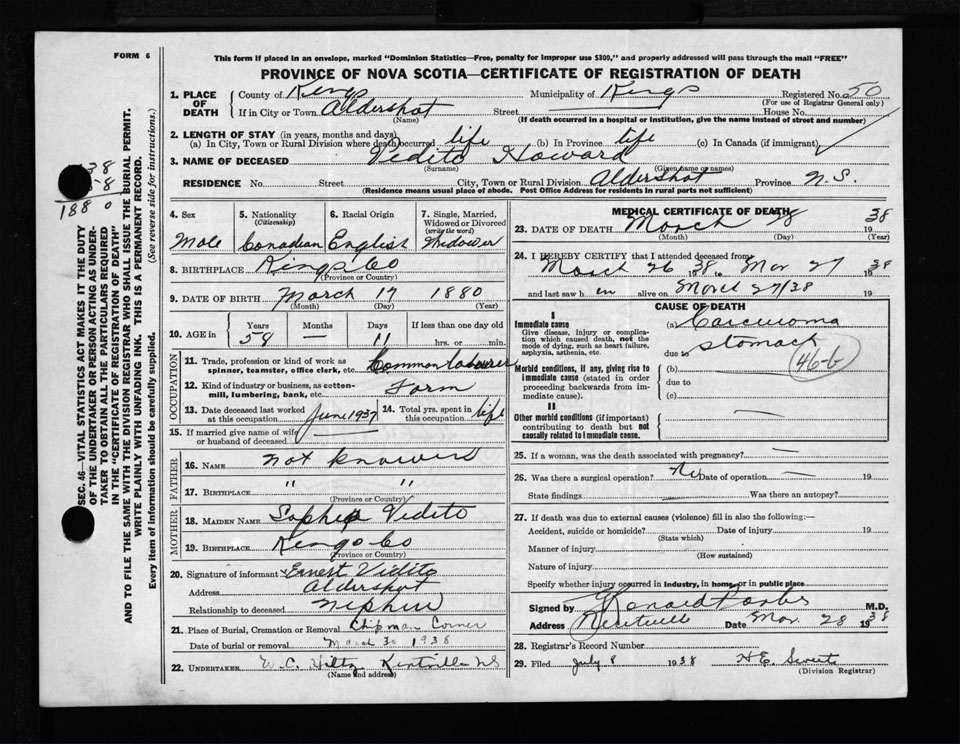 FORM 6
This form if placed in an envelope, marked "Dominion Statistics—Free, penalty for improper use $300," and properly addressed will pass through the mail "FREE"
PROVINCE OF NOVA SCOTIA—CERTIFICATE OF REGISTRATION OF DEATH
1. PLACE OF DEATH County of Kings Municipality of Kings Registered No. 50
(For use of Registrar General only)
If in City or Town Aldershot Street House No.
(Name) (If death occurred in a hospital or institution, give the name instead of street and number)
2. LENGTH OF STAY (in years, months and days)
(a) In City, Town or Rural Division where death occurred life (b) In Province life (c) In Canada (if immigrant)
3. NAME OF DECEASED Vidito Howard
(Surname) (Given name or names)
RESIDENCE No. Street City, Town or Rural Division Aldershot Province N.S.
(Residence means usual place of abode. Post Office Address for residents in rural parts not sufficient)
4. Sex 5. Nationality (Citizenship) 6. Racial Origin 7. Single, Married, Widowed or Divorced (write the word)
Male Canadian English Widower
8. BIRTHPLACE Kings Co
(Province or Country)
9. DATE OF BIRTH March 17 1880
(Month) (Day) (Year)
10. AGE in Years Months Days If less than one day old
58 — 11 hrs. or min.
OCCUPATION
11. Trade, profession or kind of work as spinner, teamster, office clerk, etc. Common labourer
12. Kind of industry or business, as cotton-mill, lumbering, bank, etc. Farm
13. Date deceased last worked at this occupation June 1937 14. Total yrs. spent in this occupation life
15. If married give name of wife or husband of deceased —
FATHER
16. NAME not known
17. BIRTHPLACE " "
(Province or Country)
MOTHER
18. MAIDEN NAME Sophia Vidito
19. BIRTHPLACE Kings Co
(Province or Country)
20. Signature of informant Ernest Vidito
Address Aldershot
Relationship to deceased nephew
21. Place of Burial, Cremation or Removal Chipman Corner
Date of burial or removal March 30 1938
22. UNDERTAKER W. C. Hiltz Kentville NS
(Name and address)
MEDICAL CERTIFICATE OF DEATH
23. DATE OF DEATH March 28 1938
(Month) (Day) (Year)
24. I HEREBY CERTIFY that I attended deceased from
March 26 38 to Mar 27 1938
and last saw h im alive on March 27/38 19
CAUSE OF DEATH
I
Immediate cause (a) Carcinoma
Give disease, injury or complication which caused death, not the mode of dying, such as heart failure, asphyxia, asthenia, etc.
due to stomach
46-b
Morbid conditions, if any, giving rise to immediate cause (stated in order proceeding backwards from immediate cause).
(b)
due to
(c)
II
Other morbid conditions (if important) contributing to death but not causally related to immediate cause. —
25. If a woman, was the death associated with pregnancy? —
26. Was there a surgical operation? No Date of operation — 19
State findings — Was there an autopsy?
27. If death was due to external causes (violence) fill in also the following:—
Accident, suicide or homicide? Date of injury 19
(State which)
Manner of injury
(How sustained)
Nature of injury
Specify whether injury occurred in industry, in home, or in public place
Signed by M.D.
Address Kentville Date Mar. 28 1938
28. Registrar's Record Number
29. Filed July 8 1938 H E
(Division Registrar)
SEC. 46—VITAL STATISTICS ACT MAKES IT THE DUTY
OF THE UNDERTAKER OR PERSON ACTING AS UNDER-
TAKER TO OBTAIN ALL THE PARTICULARS REQUIRED
IN THE "CERTIFICATE OF REGISTRATION OF DEATH"
AND TO FILE THE SAME WITH THE DIVISION REGISTRAR WHO SHALL ISSUE THE BURIAL PERMIT.
WRITE PLAINLY WITH UNFADING INK. THIS IS A PERMANENT RECORD.
Every item of information should be carefully supplied. (See reverse side for instructions.)
38
58
1880